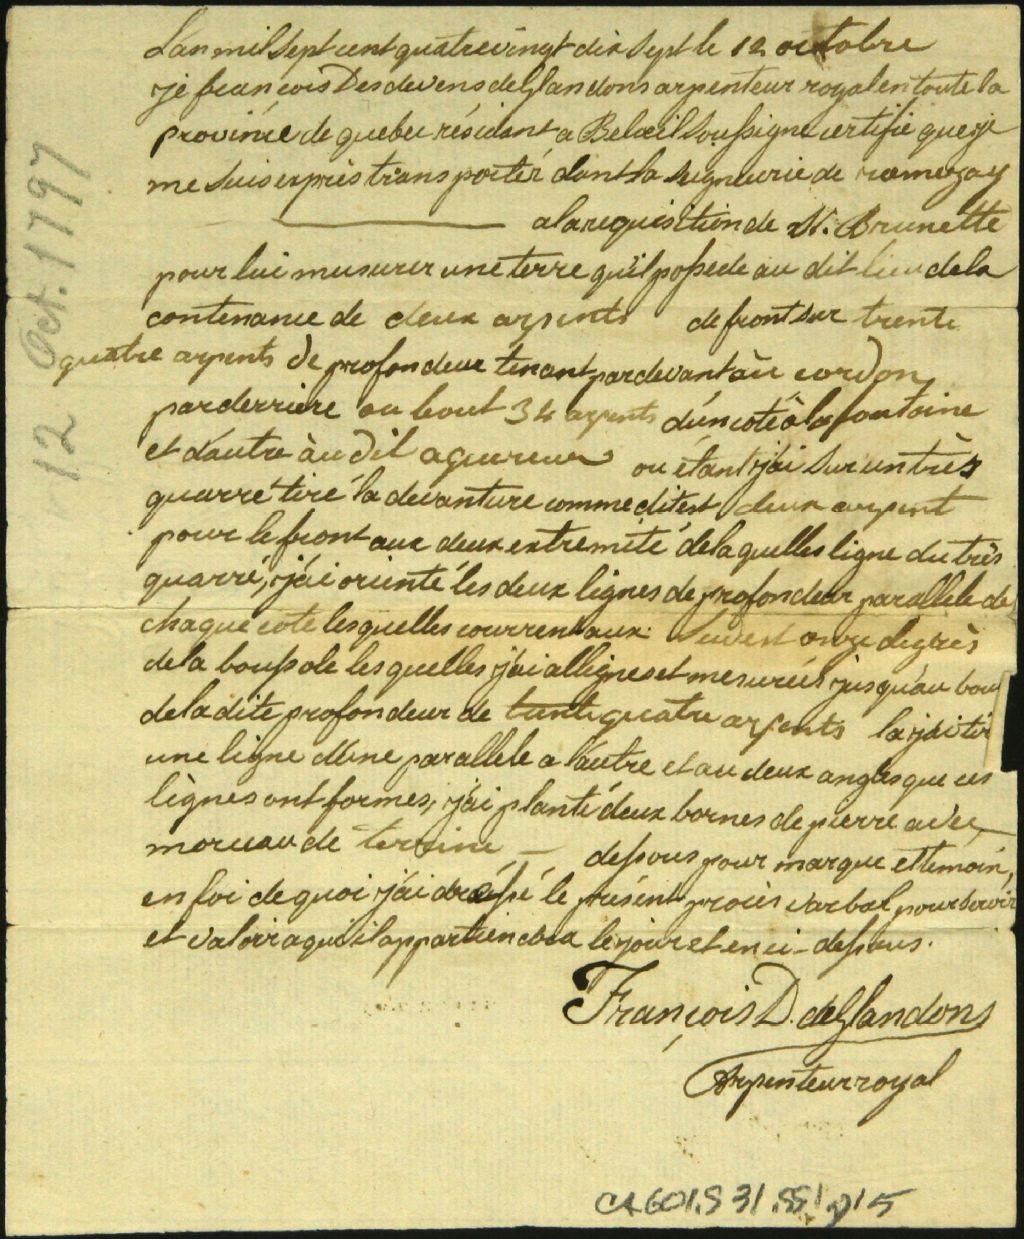 L'an mil sept cent quatre vingt dix sept le 12 octobre
je françois Desdevens deGlandons arpenteur royal en toute la
province de quebec résidant a Belœil Soussigne certifie que je
me suis exprès transporter dant la seigneurie de ramezay
a la requisition de M. Brunette
pour lui musurer une terre qu'il possede au dit lieu de la
contenance de deux arpents de front sur trente
quatre arpents de profondeur tenant par devant àu cordon
par derriere au bout 34 arpents d'un coté à lafontaine
et d'autre àu dit aquereur ou étant j'ai Sur un très
quarré tiré la devanture comme dit est deux arpent
pour le front aux deux extremité de laquelles ligne du très
quarré, j'ai orienté les deux lignes de profondeur parallele de
chaque coté lesquelles courrent aux Sudest onze degrès
de la boussole lesquelles j'ai allignes et mesurées jusqu'au bou
de la dite profondeur de trente quatre arpents la j'ai tir
une ligne d'une parallele a l'autre et au deux angles que ces
lignes ont formes, j'ai planté deux bornes de pierre avec
morceau de terrine dessous pour marque et temoin,
en foi de quoi j'ai dressé le présent procès varbal pour servir
et valoir a qui il appartiendra le jour et en ci-dessus.
François D. deGlandons
Arpenteur royal
12 Oct. 1797
CA601,S31,SS1,D15